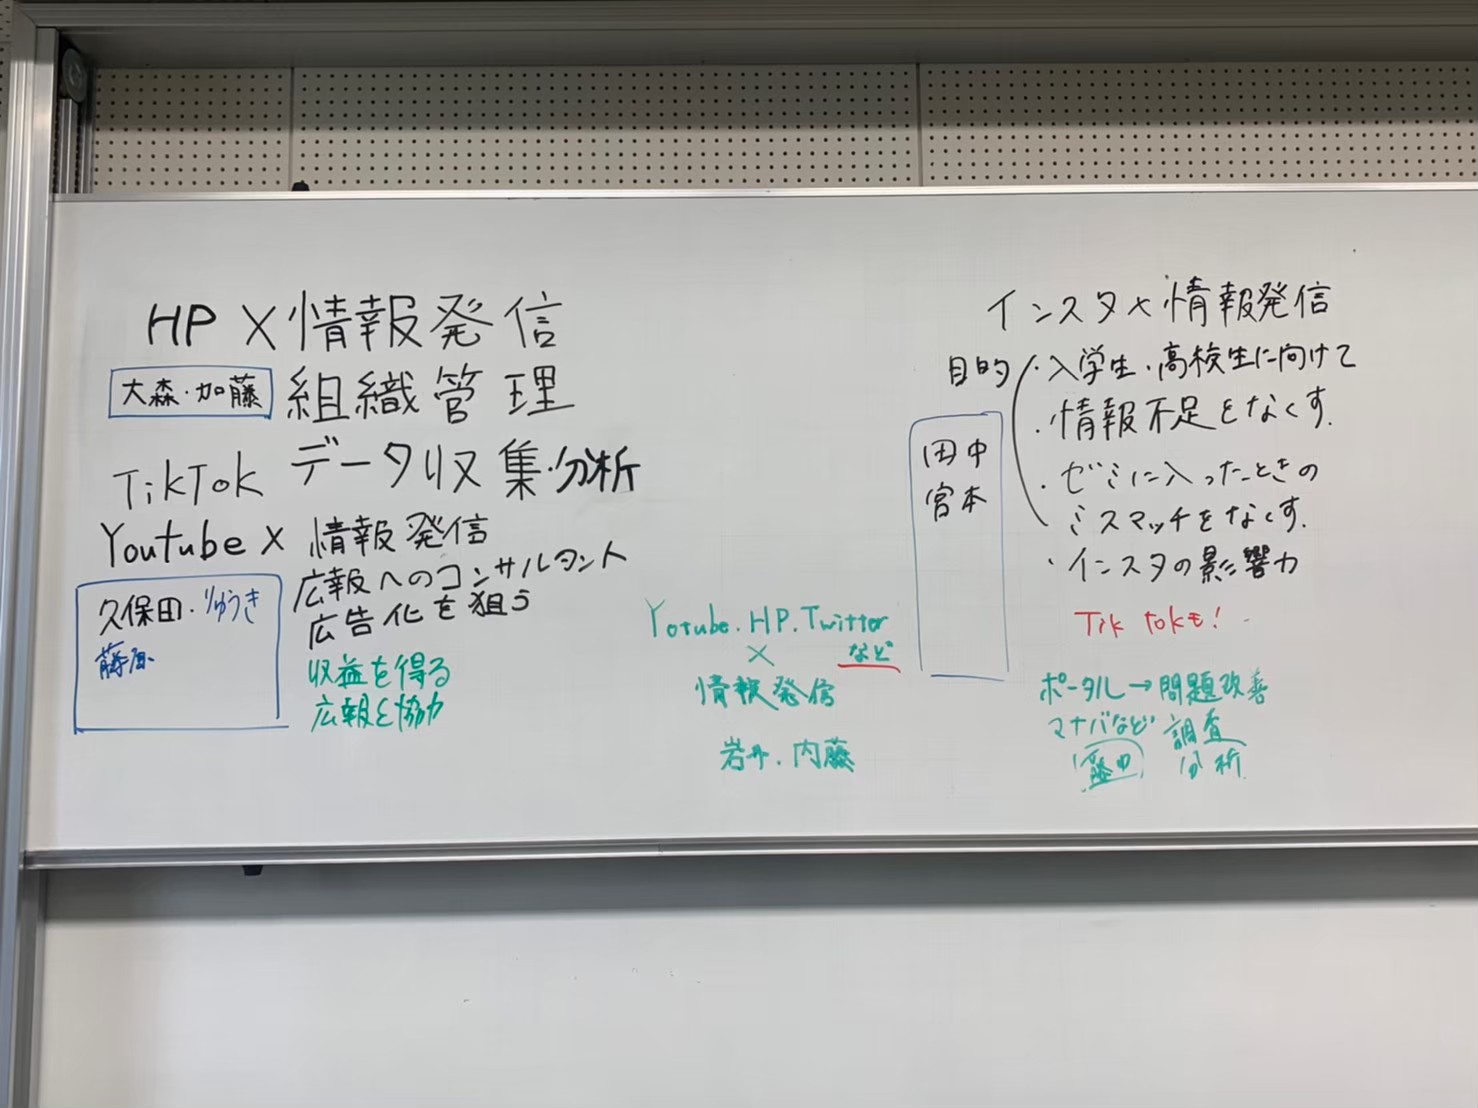 HP × 情報発信
大森・加藤 組織管理
TikTok データ収集・分析
Youtube × 情報発信
広報へのコンサルタント
広告化を狙う
久保田・りゅうき
収益を得る
広報と協力
Yotube.HP.Twitter
× など
情報発信
岩井.内藤
田中
宮本
インスタ × 情報発信
目的 ・入学生・高校生に向けて
・情報不足をなくす.
・ゼミに入ったときの
ミスマッチをなくす.
・インスタの影響力
Tik tokも!
ポータル→問題改善
マナバなど 調査
分析